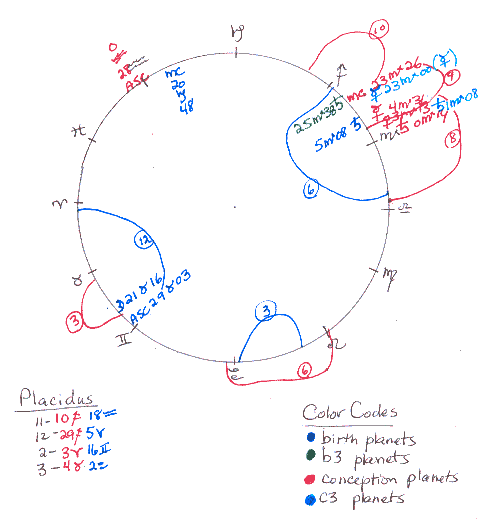 ♑
10
0
♓
28 ♒
ASC
MC
20
♑
48
♐
MC 23♏26
☿ 23♏00 (☿)
9
25♏38 ♄
☿ 4♏31
5♏08 ♄
♄ 0♏14
♄ 5♏08
♏
8
♓
6
♈
♎
12
♉
☽ 21♉16
ASC 29♉03
♍
3
3
♊
♌
♋
6
Placidus
11 - 10♐ 18♒
12 - 29♐ 5♈
2 - 3♈ 16♊
3 - 4♉ 2♋
Color Codes
birth planets
b3 planets
conception planets
c3 planets